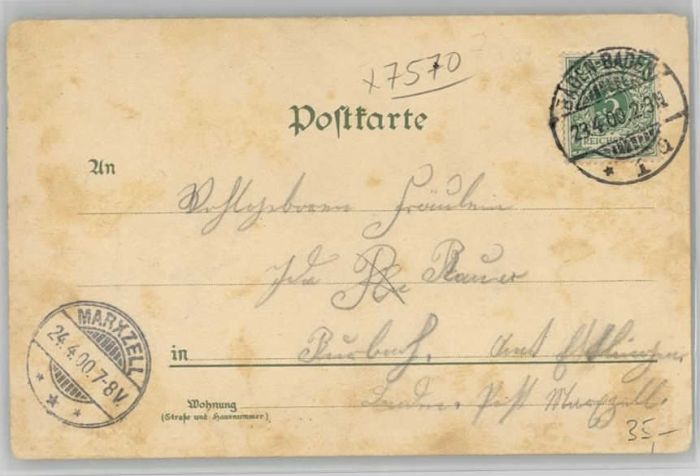 x7570
Postkarte
BADEN-BADEN
23.4.00.2-3N
5
REICHSPOST
* 1
An
Wohlgeboren Fräulein
Ida Bauer
MARXZELL
24.4.00.7-8V.
in Burbach, Amt Ettlingen
Wohnung
(Straße und Hausnummer)
Baden. Post Marxzell.
35,-